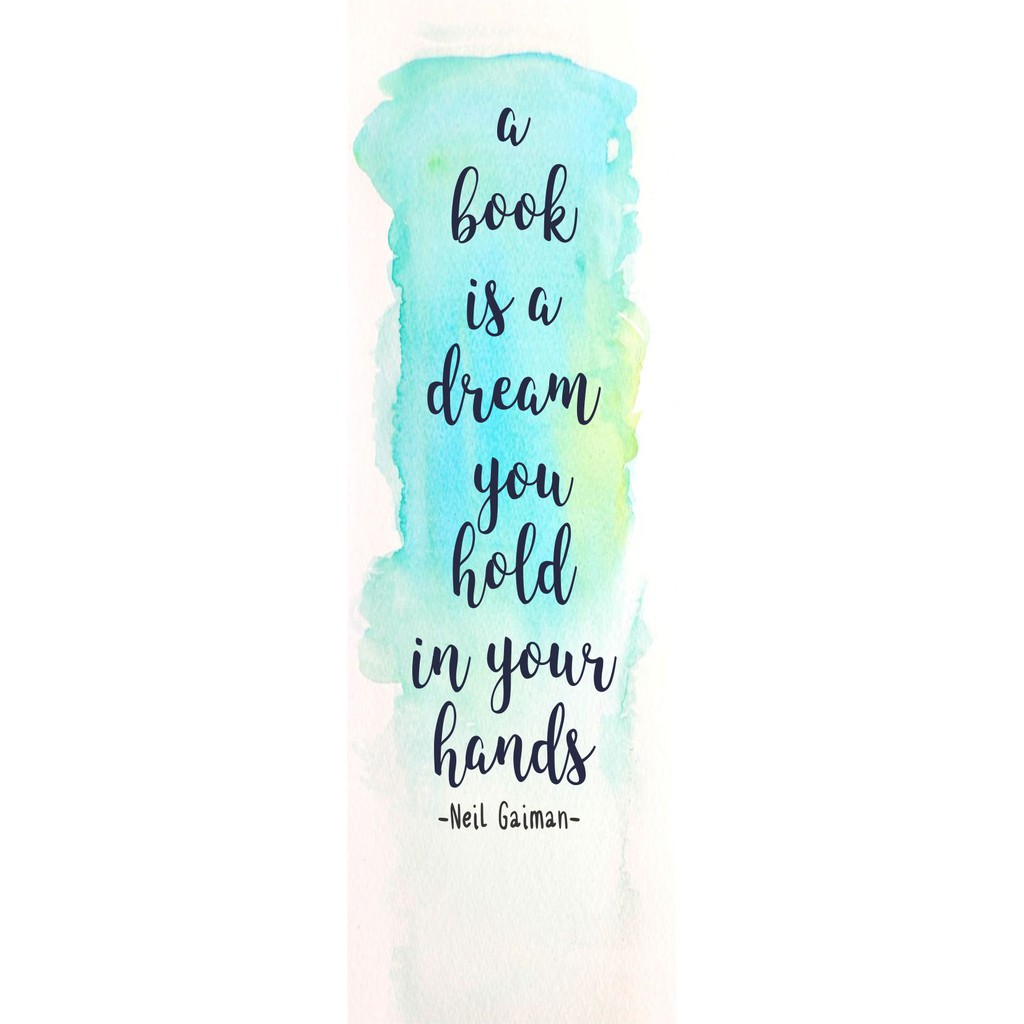 a
book
is a
dream
you
hold
in your
hands
-Neil Gaiman-